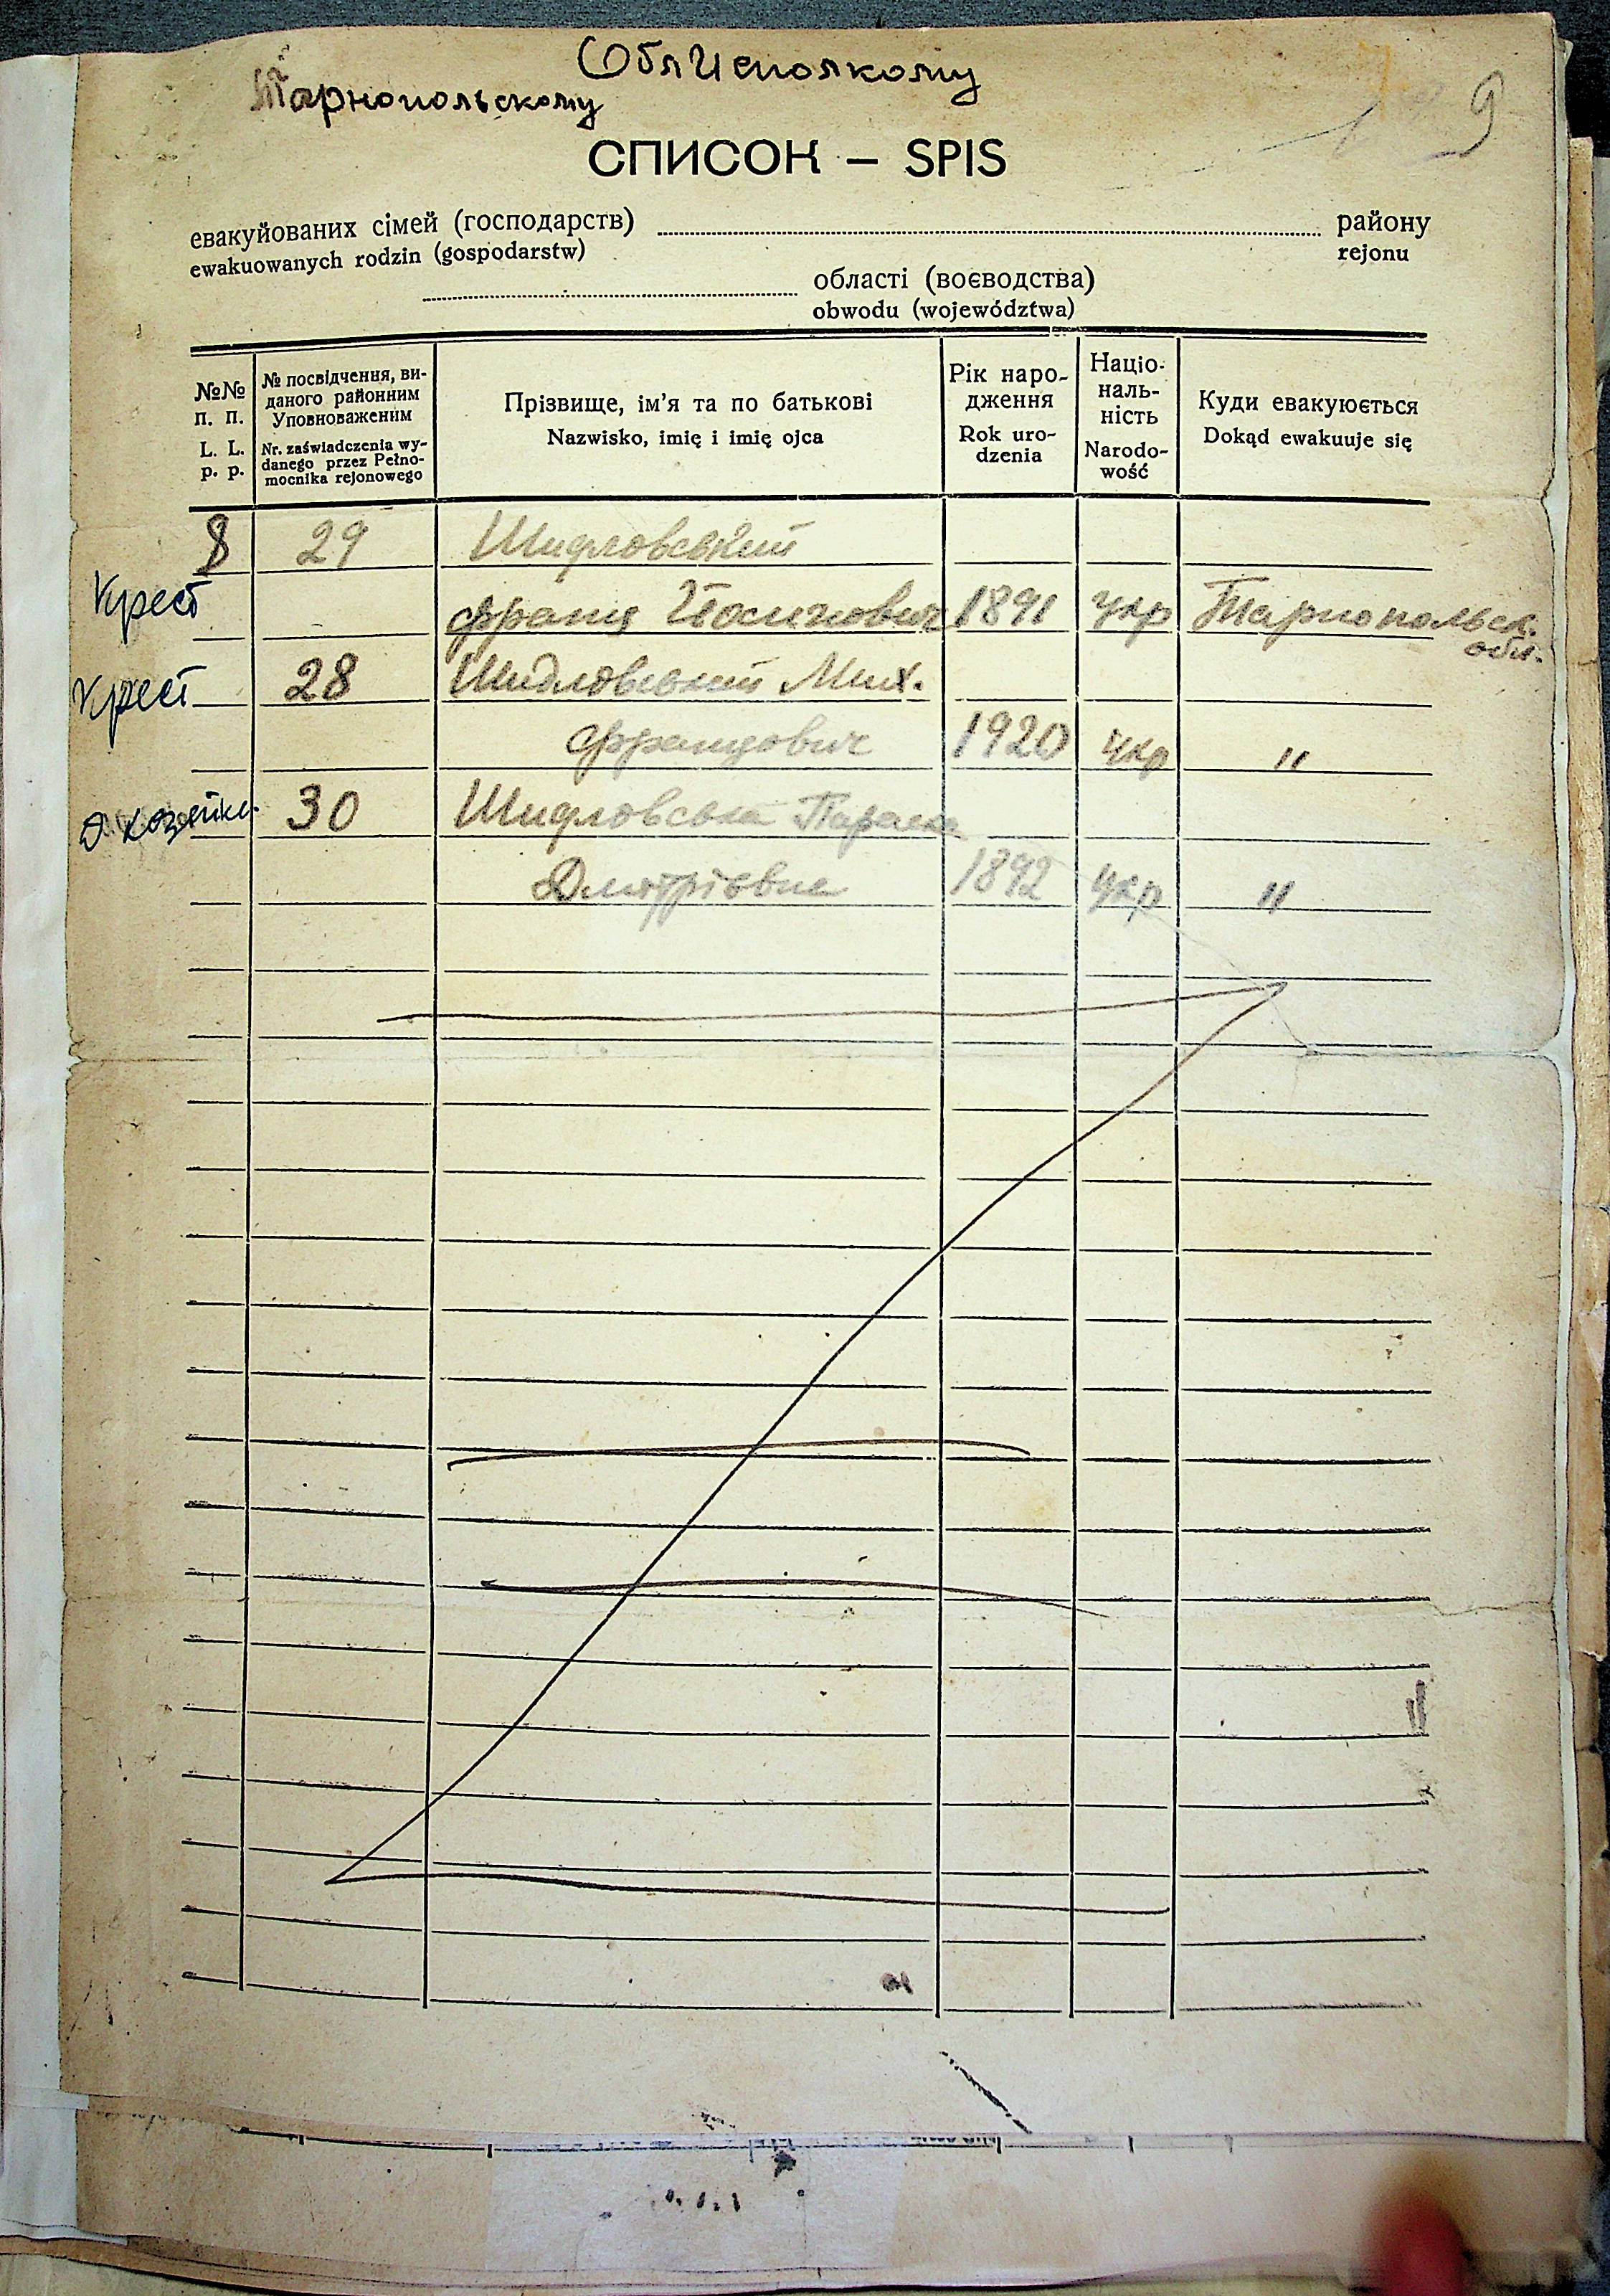 ОблИсполкому
Тарнопольскому
9
СПИСОК — SPIS
евакуйованих сімей (господарств) району
ewakuowanych rodzin (gospodarstw) rejonu
області (воєводства)
obwodu (województwa)
№№ п. п. L. L. p. p.
№ посвідчення, виданого районним Уповноваженим Nr. zaświadczenia wydanego przez Pełnomocnika rejonowego
Прізвище, ім'я та по батькові Nazwisko, imię i imię ojca
Рік народження Rok urodzenia
Націо-наль-ність Narodo-wość
Куди евакуюється Dokąd ewakuuje się
8 29 Шидловський
Крест Франц Йосипович 1891 Укр Тарнопольск.
обл.
Крест 28 Шидловський Мих.
Францович 1920 Укр "
Д. хозяйка 30 Шидловська Параска
Дмитрівна 1892 Укр "